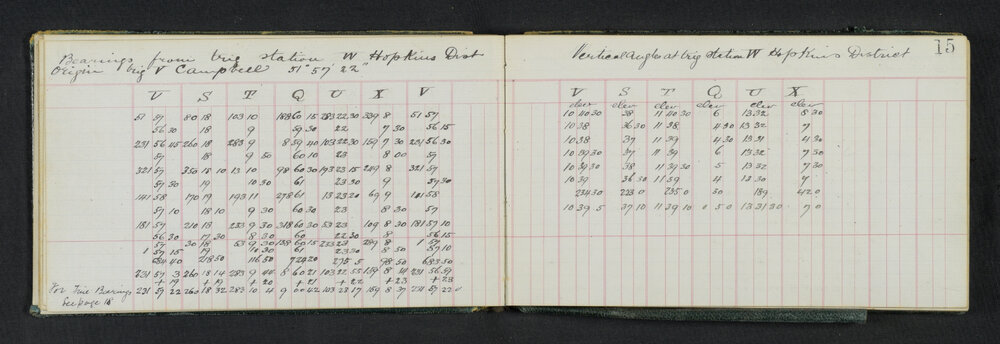 15
Bearings from trig station W Hopkins Dist
Origin trig V Campbell 51° 57' 22"
V S T Q U X V
51 57 80 18 103 10 188 60 15 283 22 30 339 8 51 57
56 30 18 9 59 30 22 7 30 56 15
231 56 45 260 18 283 9 8 59 40 103 22 30 159 7 30 231 56 30
57 18 9 50 60 10 23 8 00 57
321 57 350 18 10 13 10 98 60 30 193 23 15 249 8 321 57
57 50 19 10 30 61 23 30 9 57 30
141 58 170 19 193 11 278 61 13 23 20 69 9 141 58
57 10 18 10 9 30 60 30 23 8 30 57
181 57 210 18 233 9 30 318 60 30 53 23 109 8 30 181 57 10
56 30 17 30 8 30 60 22 30 8 56 15
57 30 18 53 9 30 138 60 15 233 23 289 8 1 57
1 57 15 19 10 30 61 23 30 8 50 57 10
684 40 218 50 116 50 724 20 275 5 98 50 683 50
231 57 3 260 18 14 283 9 44 8 60 21 103 22 55 159 8 14 231 56 59
+ 19 + 19 + 20 + 21 + 22 + 23 + 23
For True Bearings 231 57 22 260 18 32 283 10 4 9 00 42 103 23 17 159 8 37 231 57 22
See page 15
Vertical angles at trig station W Hopkins District
V S T Q U X
elev elev elev elev elev elev
10 40 30 38 11 40 30 6 13 32 8 30
10 38 36 30 11 38 4 30 13 30 7
10 38 37 11 39 4 30 13 31 4 30
10 39 30 37 11 39 6 13 32 7 30
10 39 30 38 11 39 30 5 13 32 7 30
10 39 36 30 11 39 4 13 30 7
234 30 223 0 235 0 30 189 42 0
10 39 5 37 10 11 39 10 0 5 0 13 31 30 7 0